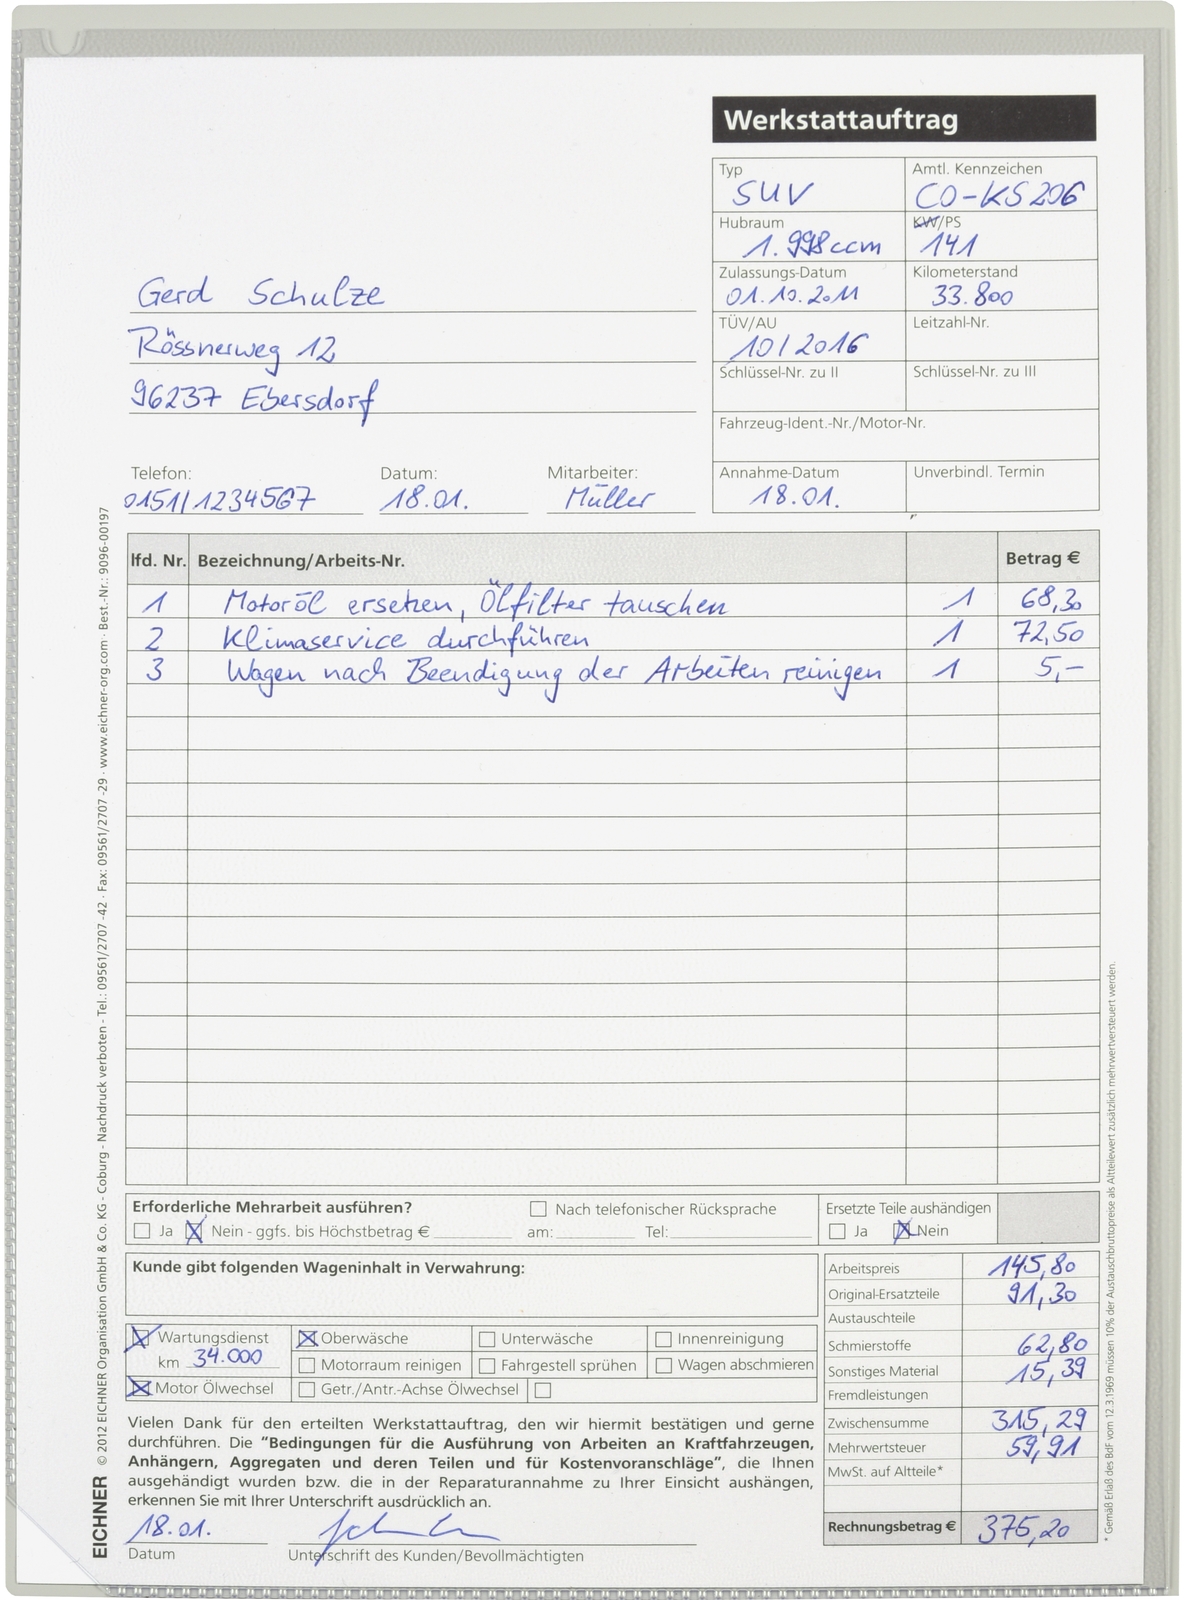 Werkstattauftrag
Typ
SUV
Amtl. Kennzeichen
CO-KS 206
Hubraum
1.998 ccm
KW/PS
141
Zulassungs-Datum
01.10.2011
Kilometerstand
33.800
TÜV/AU
10/2016
Leitzahl-Nr.
Schlüssel-Nr. zu II
Schlüssel-Nr. zu III
Fahrzeug-Ident.-Nr./Motor-Nr.
Annahme-Datum
18.01.
Unverbindl. Termin
Gerd Schulze
Rössnerweg 12
96237 Ebersdorf
Telefon:
0151/1234567
Datum:
18.01.
Mitarbeiter:
Müller
lfd. Nr. Bezeichnung/Arbeits-Nr. Betrag €
1 Motoröl ersetzen, Ölfilter tauschen 1 68,30
2 Klimaservice durchführen 1 72,50
3 Wagen nach Beendigung der Arbeiten reinigen 1 5,-
Erforderliche Mehrarbeit ausführen? Nach telefonischer Rücksprache
Ja Nein - ggfs. bis Höchstbetrag € am: Tel:
Ersetzte Teile aushändigen
Ja Nein
Kunde gibt folgenden Wageninhalt in Verwahrung:
Wartungsdienst
km 34.000
Oberwäsche Unterwäsche Innenreinigung
Motorraum reinigen Fahrgestell sprühen Wagen abschmieren
Motor Ölwechsel Getr./Antr.-Achse Ölwechsel
Arbeitspreis 145,80
Original-Ersatzteile 91,30
Austauschteile
Schmierstoffe 62,80
Sonstiges Material 15,39
Fremdleistungen
Zwischensumme 315,29
Mehrwertsteuer 59,91
MwSt. auf Altteile*
Rechnungsbetrag € 375,20
Vielen Dank für den erteilten Werkstattauftrag, den wir hiermit bestätigen und gerne
durchführen. Die "Bedingungen für die Ausführung von Arbeiten an Kraftfahrzeugen,
Anhängern, Aggregaten und deren Teilen und für Kostenvoranschläge", die Ihnen
ausgehändigt wurden bzw. die in der Reparaturannahme zu Ihrer Einsicht aushängen,
erkennen Sie mit Ihrer Unterschrift ausdrücklich an.
18.01.
Datum
Unterschrift des Kunden/Bevollmächtigten
EICHNER © 2012 EICHNER Organisation GmbH & Co. KG - Coburg - Nachdruck verboten - Tel.: 09561/2707 -42 · Fax: 09561/2707 -29 · www.eichner-org.com · Best.-Nr.: 9096-00197
* Gemäß Erlaß des BdF vom 12.3.1969 müssen 10% der Austauschbruttopreise als Altteilewert zusätzlich mehrwertversteuert werden.